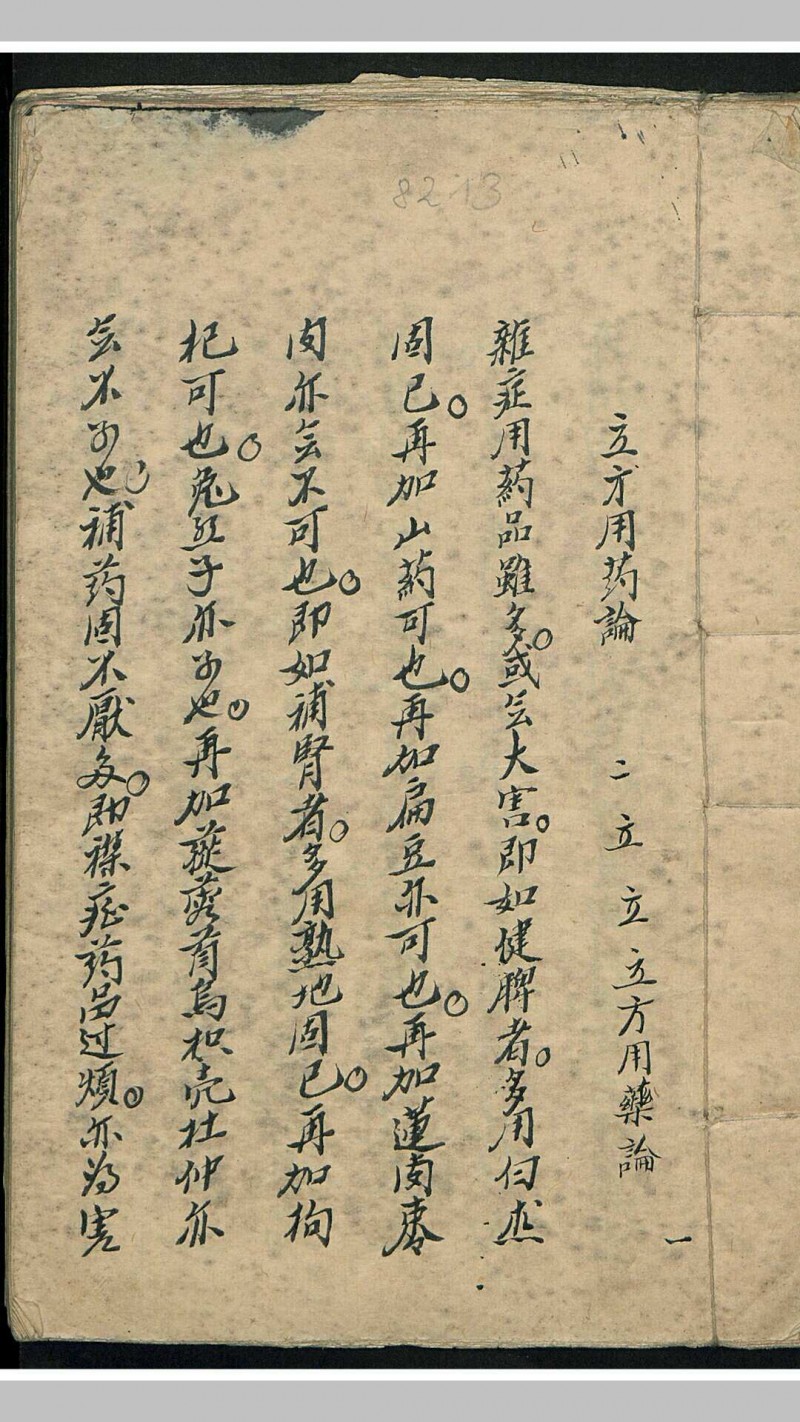 8213
一
立方用药論 二 立 立 立方用藥論
雜症用药品雖多或㒰大害即如健脾者多用白朮
固已再加山药可也再加扁豆亦可也再加蓮肉麥
肉亦㒰不可也即如補腎者多用熟地固已再加枸
杞可也兔丝子亦可也再加蓯蓉首烏枳壳杜仲亦
㒰不可也補药固不厭多即襍症药品过煩亦為害